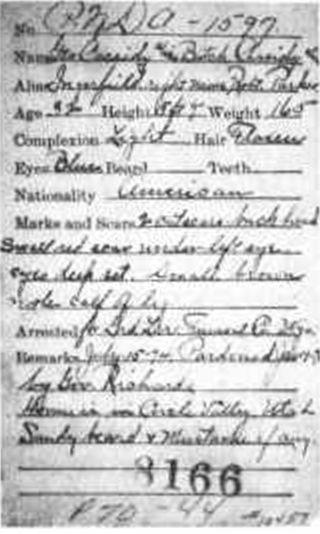 No. (P.N.D.) A - 1597
Name Geo Cassidy alias Butch Cassidy
Alias Ingerfield. right name Robt. Parker
Age 32 Height 5ft 9 Weight 165
Complexion Light Hair Flaxen
Eyes Blue Beard Teeth
Nationality American
Marks and Scars 2 cut scars back head
Small red scar under left eye.
eyes deep set. Small brown
mole calf of leg
Arrested for Grd. Lar. Fremont Co. Wyo.
Remarks July-15-94. Pardoned
by Gov. Richards
Home is in Circle Valley Utah
Sandy beard & Mustache if any.
8166
P 70 - 44 #10457